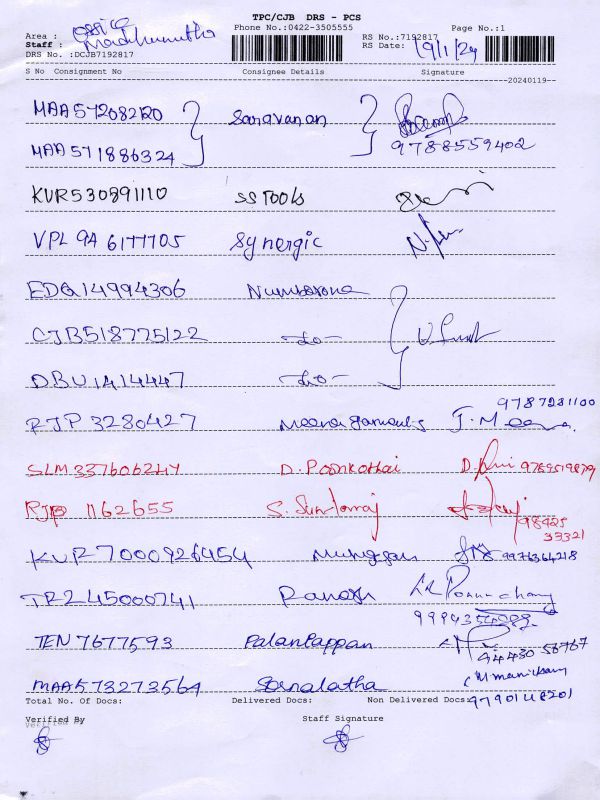 TPC/CJB DRS - PCS
Phone No.:0422-3505555 Page No.:1
Area : office
Staff : Madhumitha
RS No.:7192817
RS Date: 19/1/24
DRS No. :DCJB7192817
S No Consignment No Consignee Details Signature
20240119
MAA572082120 Saravanan
MAA571886324 9788559402
KUR530891110 SS Tools
VPL 9A 6177705 Synergic
EDQ14994306
CJB518775122 -do-
DBU1414447 -do-
RJP 3280427 J. Meena 9787231100
SLM337606244 D. Poonkothai
RJP 1162655 S. Sundarraj 98425 33321
KUR7000926454 Murugan 9976364218
TR245000741 Ramesh
TEN 7677593 Palaniappan 94430 56767
MAA573273564 Sornalatha M manickam 9790148201
Total No. Of Docs: Delivered Docs: Non Delivered Docs:
Verified By Staff Signature